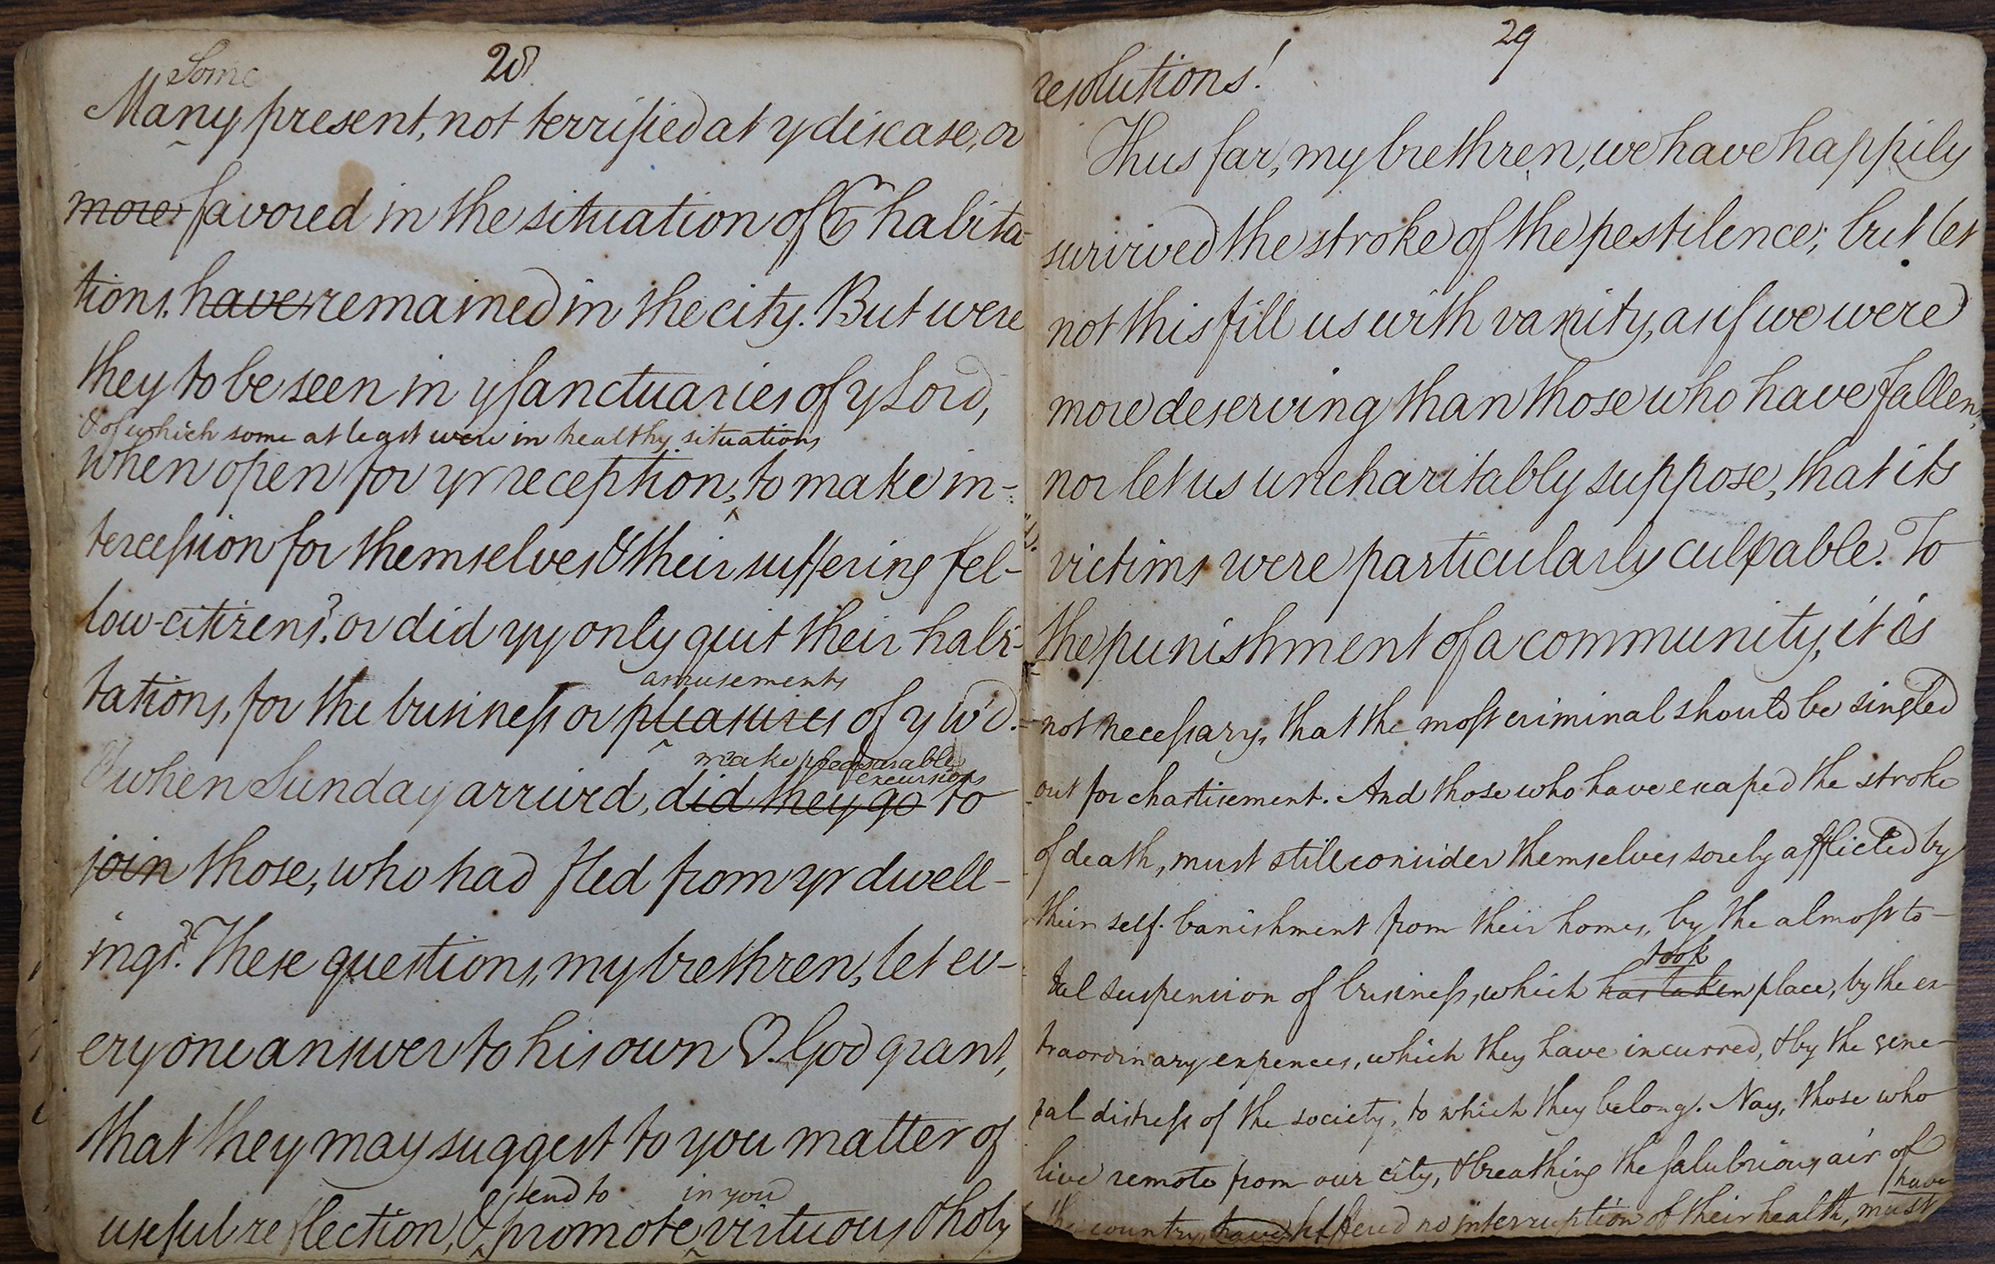 28
Some
Many present, not terrified at y disease, or
more favored in the situation of habita-
tions, have remained in the city. But were
they to be seen in y sanctuaries of y Lord,
& of which some at least were in healthy situations
when open for yr reception, to make in-
tercession for themselves & their suffering fel-
low-citizens? or did yy only quit their habi-
amusements
tations, for the business or pleasures of y w'd.
make pleasurable
excursions
& when Sunday arrived, did they go to
join those, who had fled from yr dwell-
ings? These questions, my brethren, let ev-
ery one answer to his own ♡. God grant,
that they may suggest to you matter of
tend to in you
useful reflection, & promote virtuous & holy
29
resolutions!
Thus far, my brethren, we have happily
survived the stroke of the pestilence; but let
not this fill us with vanity, as if we were
more deserving than those who have fallen,
nor let us uncharitably suppose, that its
victims were particularly culpable. To
the punishment of a community, it is
not necessary, that the most criminal should be singled
out for chastisement. And those who have escaped the stroke
of death, must still consider themselves sorely afflicted by
their self-banishment from their homes, by the almost to-
took
tal suspension of business, which has taken place, by the ex-
traordinary expences, which they have incurred, & by the gene-
ral distress of the society, to which they belong. Nay, those who
live remote from our city, & breathing the salubrious air of
have
the country, have suffered no interruption of their health, must